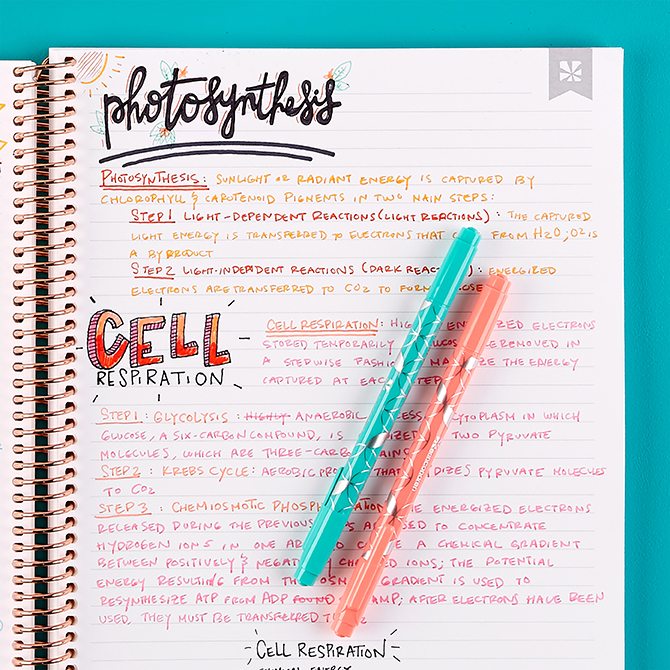 photosynthesis
PHOTOSYNTHESIS: SUNLIGHT OR RADIANT ENERGY IS CAPTURED BY
CHLOROPHYLL & CAROTENOID PIGMENTS IN TWO MAIN STEPS:
STEP 1 LIGHT-DEPENDENT REACTIONS (LIGHT REACTIONS): THE CAPTURED
LIGHT ENERGY IS TRANSFERRED TO ELECTRONS THAT FROM H2O; O2 IS
A BYPRODUCT
STEP 2 LIGHT-INDEPENDENT REACTIONS (DARK REAC): ENERGIZED
ELECTRONS ARE TRANSFERRED TO CO2 TO FORM
CELL
RESPIRATION
CELL RESPIRATION: ELECTRONS
STORED TEMPORARILY REMOVED IN
A STEPWISE THE ENERGY
CAPTURED AT EACH
STEP 1: GLYCOLYSIS: HIGHLY ANAEROBIC CYTOPLASM IN WHICH
GLUCOSE, A SIX-CARBON COMPOUND, IS TWO PYRUVATE
MOLECULES, WHICH ARE THREE-CARBON
STEP 2: KREBS CYCLE: AEROBIC THAT PYRUVATE MOLECULES
TO CO2
STEP 3: CHEMIOSMOTIC ENERGIZED ELECTRONS
RELEASED DURING THE PREVIOUS USED TO CONCENTRATE
HYDROGEN IONS IN ONE A CHEMICAL GRADIENT
BETWEEN POSITIVELY & IONS; THE POTENTIAL
ENERGY RESULTING FROM GRADIENT IS USED TO
RESYNTHESIZE ATP FROM ADP FOUND AMP; AFTER ELECTRONS HAVE BEEN
USED, THEY MUST BE TRANSFERRED
CELL RESPIRATION